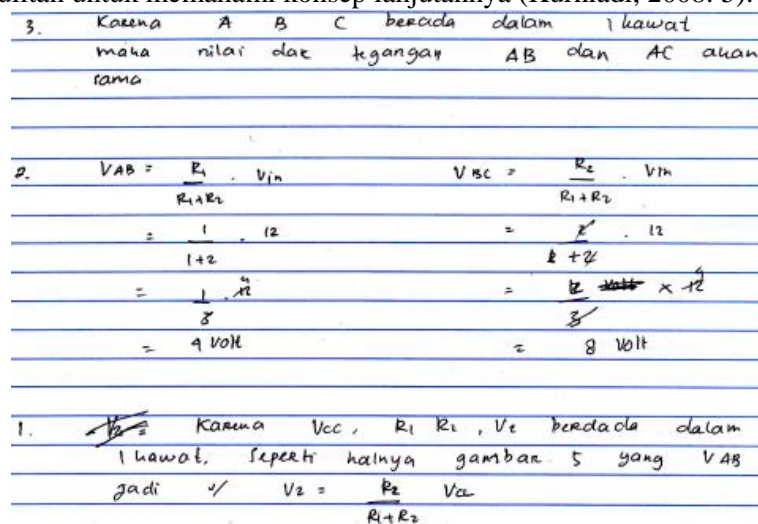 untuk memahami konsep lanjutannya
3. Karena A B C berada dalam 1 kawat
maka nilai dar tegangan AB dan AC akan
sama
2. VAB = R1 / R1+R2 . Vin VBC = R2 / R1+R2 . Vin
= 1 / 1+2 . 12 = 2 / 1+2 . 12
= 1 / 3 . 12 = 2 / 3 x 12
= 4 Volt = 8 Volt
1. Karena Vcc, R1 R2, V2 berdada dalam
1 kawat, Seperti halnya gambar 5 yang VAB
Jadi V2 = R2 / R1+R2 Vcc